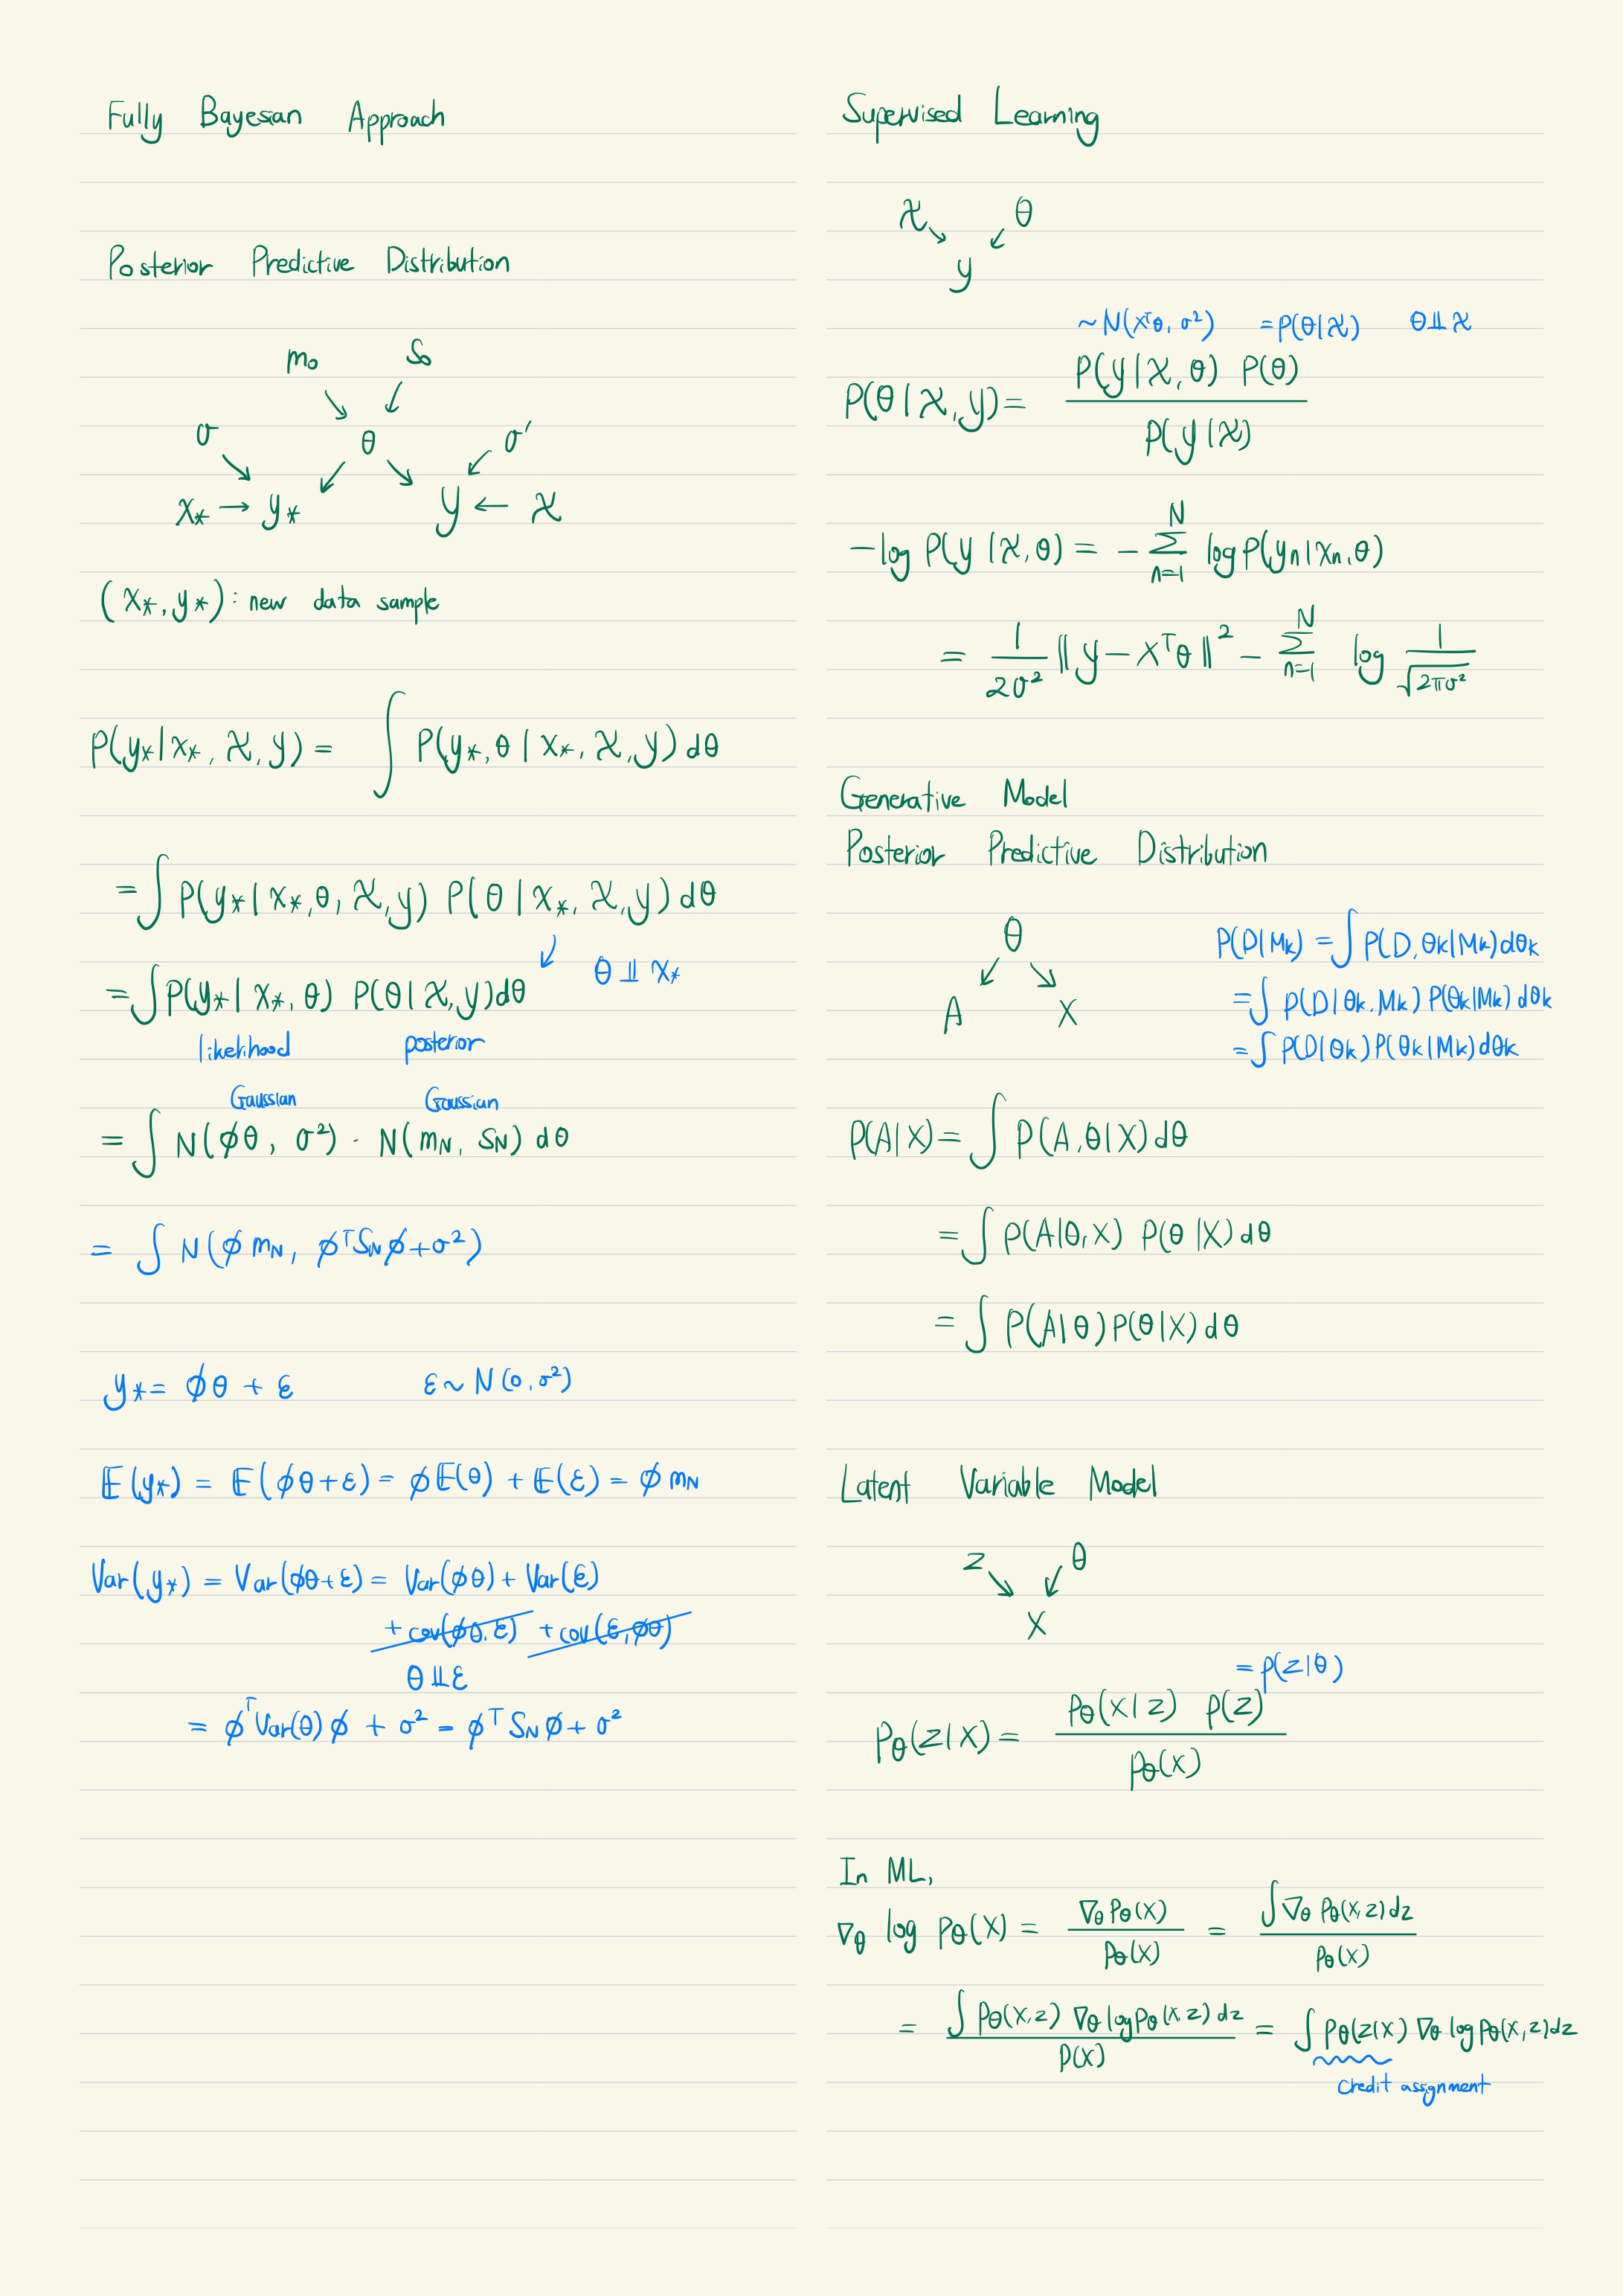 Fully Bayesian Approach
Posterior Predictive Distribution
m₀ S₀
σ θ σ'
x* → y* y ← 𝒳
(x*, y*) : new data sample
P(y*|x*, 𝒳, y) = ∫ P(y*, θ | x*, 𝒳, y) dθ
= ∫ P(y*| x*, θ, 𝒳, y) P(θ | x*, 𝒳, y) dθ
θ ⫫ x*
= ∫ P(y*| x*, θ) P(θ | 𝒳, y) dθ
likelihood posterior
Gaussian Gaussian
= ∫ N(ϕθ, σ²) · N(m_N, S_N) dθ
= ∫ N(ϕ m_N, ϕᵀS_Nϕ + σ²)
y* = ϕθ + ε ε ~ N(0, σ²)
𝔼(y*) = 𝔼(ϕθ + ε) = ϕ𝔼(θ) + 𝔼(ε) = ϕ m_N
Var(y*) = Var(ϕθ + ε) = Var(ϕθ) + Var(ε)
+ cov(ϕθ, ε) + cov(ε, ϕθ)
θ ⫫ ε
= ϕᵀVar(θ)ϕ + σ² = ϕᵀS_Nϕ + σ²
Supervised Learning
𝒳 θ
y
~ N(xᵀθ, σ²) = P(θ|𝒳) θ ⫫ 𝒳
P(θ | 𝒳, y) = P(y | 𝒳, θ) P(θ)
P(y | 𝒳)
-log P(y | 𝒳, θ) = - Σ_{n=1}^{N} log P(yn | xn, θ)
= 1/2σ² ‖y - Xᵀθ‖² - Σ_{n=1}^{N} log 1/√2πσ²
Generative Model
Posterior Predictive Distribution
θ
A X
P(D|Mk) = ∫ P(D, θk|Mk) dθk
= ∫ P(D|θk, Mk) P(θk|Mk) dθk
= ∫ P(D|θk) P(θk|Mk) dθk
P(A|X) = ∫ P(A, θ|X) dθ
= ∫ P(A|θ, X) P(θ|X) dθ
= ∫ P(A|θ) P(θ|X) dθ
Latent Variable Model
z θ
X
= p(z|θ)
Pθ(z|X) = Pθ(X|z) p(z)
Pθ(X)
In ML,
∇θ log Pθ(X) = ∇θ Pθ(X) / Pθ(X) = ∫ ∇θ Pθ(X, z) dz / Pθ(X)
= ∫ Pθ(X, z) ∇θ log Pθ(X, z) dz / P(X) = ∫ Pθ(z|X) ∇θ log Pθ(X, z) dz
credit assignment